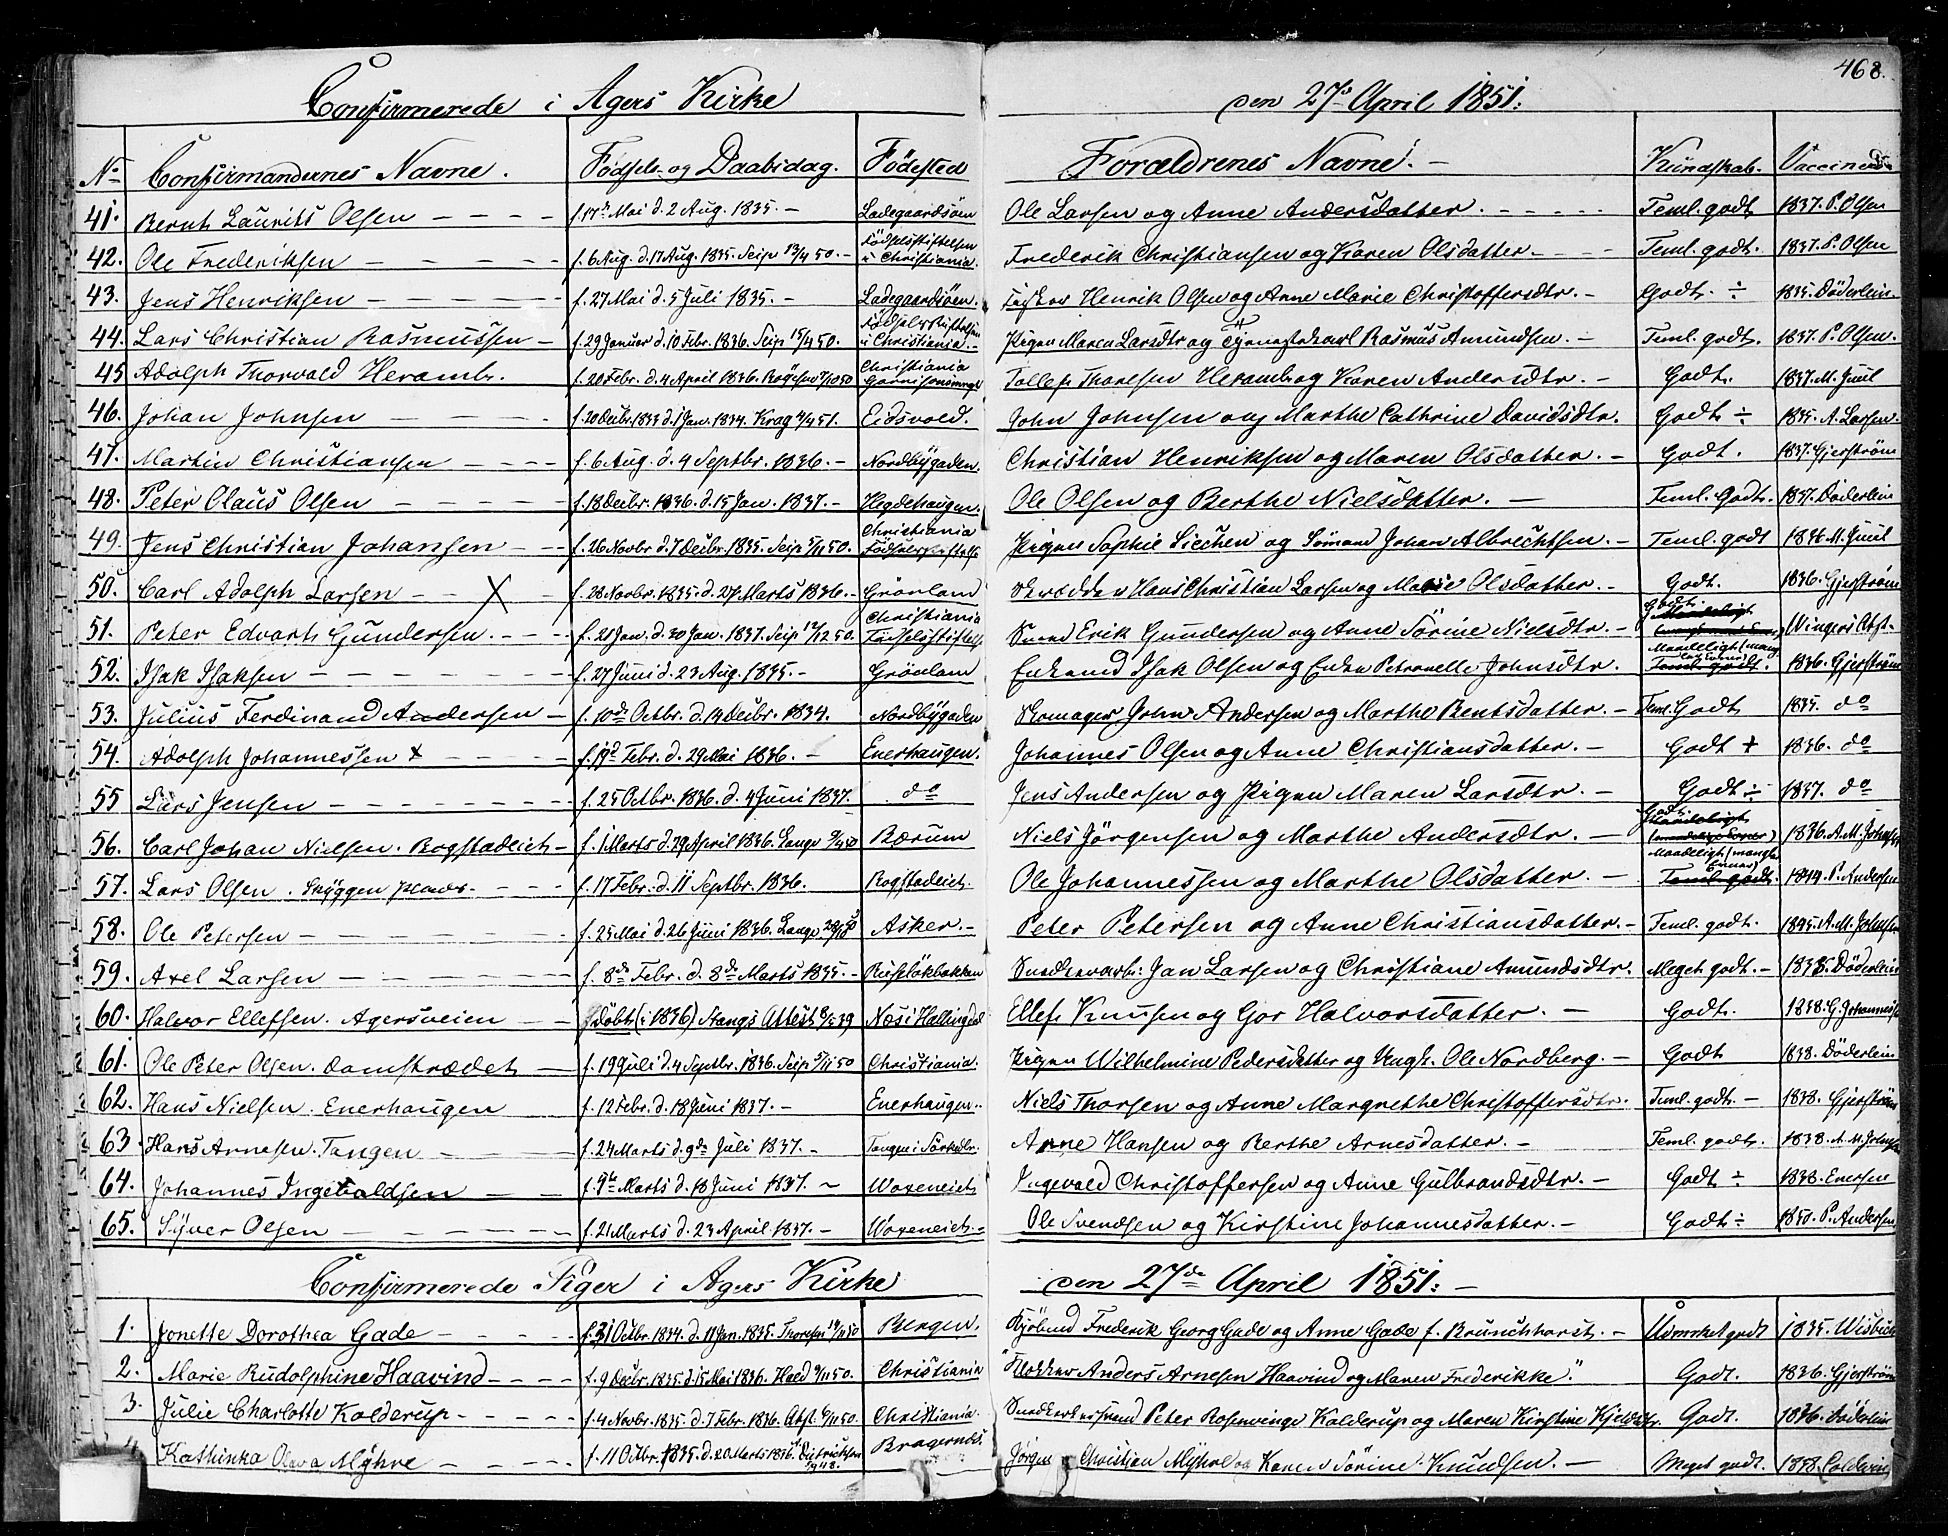 468.
Confirmerede i Agers Kirke den 27de April 1851:
No Confirmandernes Navne. Fødsels- og Daabsdag. Fødested Forældrenes Navne. - Kundskab. Vaccinerede
41. Bernt Laurits Olsen f. 17de Mai d. 2 Aug. 1835. - Ladegaardsøen Ole Larsen og Anne Andersdatter. Teml. godt 1837. P. Olsen
42. Ole Frederiksen f. 6 Aug. d. 17 Aug. 1835. Seip 13/4 50. - Fødselsstiftelsen i Christiania. Frederik Christiansen og Karen Olsdatter. Teml. godt. 1837. P. Olsen
43. Jens Henriksen f. 27 Mai d. 5 Juli 1835. - Ladegaardsøen. Fisker Henrik Olsen og Anne Marie Christoffersdtr. - Godt. ÷ 1835. Döderlein.
44. Lars Christian Rasmussen f. 29 Januar d. 10 Febr. 1836. Seip 15/4 50. Fødselsstiftelsen i Christiania. - Pigen Maren Larsdtr og Tjenestekarl Rasmus Amundsen. - Teml. godt. 1837. P. Olsen.
45 Adolph Thorvald Heramb. f. 20 Febr. d. 4 April 1836. 7/10 50 Christiania Garnisonsmgh Tollef Thoresen Heramb og Karen Andersdtr. - Godt. 1837. M. Juul
46. Johan Johnsen f. 20 Decbr. 1833 d. 1 Jan. 1834. Krag 4/4 51. Eidsvold. John Johnsen og Marthe Cathrine Davidsdtr. Godt ÷ 1835. A. Larsen.
47. Martin Christiansen f. 6 Aug. d. 4 Septbr. 1836. - Nordbygaden. Christian Henriksen og Maren Olsdatter. - Godt. 1837. Gjerström
48. Peter Olaus Olsen f. 18 Decbr. 1836. d. 15 Jan. 1837. - Hegdehaugen. Ole Olsen og Berthe Nielsdatter. - Teml. Godt. 1837. Döderlein
49. Jens Christian Johansen f. 26 Novbr d. 7 Decbr. 1835. Seip 5/11 50. Christiania Fødselsstiftelse Pigen Sophie Siechen og Sömand Johan Albrechtsen. - Teml. godt 1836 M. Juul
50. Carl Adolph Larsen X f. 28 Novbr. 1835. d. 27 Marts 1836. - Grönland Skrædder Hans Christian Larsen og Marie Olsdatter. - Godt. 1836. Gjerström
51. Peter Edvart Gundersen. f. 21 Jan. d. 30 Jan. 1837. Seip 12/12 50. Christiania Fødselsstiftelse Svend Erik Gundersen og Anne Sörine Nielsdtr. - Godt. Wingers Atst.
52. Isak Isaksen f. 27 Juni d. 23 Aug. 1835. - Grönland Isak Olsen og Petronelle Johnsdtr. Maadeligt Teml. godt. 1836. Gjerström
53. Julius Ferdinand Andersen f. 10de Octbr. d. 14 Decbr. 1834. Nordbygaden Skomager John Andersen og Marthe Bentsdatter. - Teml. Godt 1835. do
54. Adolph Johannessen X f. 19d Febr. d. 29 Mai 1836. - Enerhaugen. Johannes Olsen og Anne Christiansdatter. - Godt + 1836. do
55 Lars Jensen f. 25 Octbr. 1836. d. 4 Juni 1837. do Jens Andersen og Pigen Maren Larsdtr. - Godt ÷ 1837. do
56. Carl Johan Nielsen. Bogstadeich f. 1 Marts d. 29 April 1836. Lange Bærum Niels Jörgensen og Marthe Andersdtr. - Godt. Maadeligt 1836. A. M. Johnsen
57. Lars Olsen. f. 17 Febr. d. 11 Septbr. 1836. Bogstadeich. Ole Johannessen og Marthe Olsdatter. - Maadeligt Teml. godt. 1844. P. Andersen
58. Ole Petersen f. 25 Mai d. 26 Juni 1836. Lange Asker. - Peter Petersen og Anne Christiansdatter. - Teml. godt. 1845. A. M. Johnsen
59. Axel Larsen f. 8de Febr. d. 8de Marts 1835. - Ruselökbakken Jan Larsen og Christiane Amundsdtr. Meget godt. - 1835. Döderlein
60. Halvor Ellefsen. Agersveien Döbt (i 1836) Stangs Attest 39 Næs i Hallingdal Ellef Knusen og Gor Halvorsdatter. - Godt. 1838. G. Johannessen
61. Ole Peter Olsen. Damstrædet f. 19 Juli d. 4 Septbr. 1836. Seip 5/11 50 Christiania. Pigen Wilhelmine Pedersdatter og Ungk. Ole Nordberg. - Godt 1838. Döderlein
62. Hans Nielsen. Enerhaugen f. 12 Febr. d. 18 Juni 1837. - Enerhaugen. Niels Thorsen og Anne Margrethe Christoffersdtr. Teml. godt. - 1838. Gjerström
63 Hans Arnesen. Tangen f. 24 Marts d. 9de Juli 1837. - Tangen i Sörkedl. Arne Hansen og Berthe Arnesdatter. - Teml. godt. 1838. A. M. Johnsen
64. Johannes Ingebaldsen f. 9de Marts d. 18 Juni 1837. - Woxeneich Ingevald Christoffersen og Anne Gulbrandsdtr. - Godt ÷ 1838. Enersen
65. Syver Olsen f. 21 Marts d. 23 April 1837. - Woxeneich. - Ole Svendsen og Kirstine Johannesdatter. - Godt ÷ 1850. P. Andersen
Confirmerede Piger i Agers Kirke den 27de April 1851: -
1. Jonette Dorothea Gade f. 31 Octbr. 1834. d. 11 Jan. 1835. Thoresen 14/11 50 Bergen. Kjöbmd Frederik Georg Gade og Anne Gade f. Brunchhorst. - Udmrket godt 1835. Wisbech
2. Marie Rudolphine Haavind f. 9 Decbr. 1835. d. 15 Mai 1836. Hald 9/11 50. Christiania Klokker Anders Arnesen Haavind og Maren Frederikke". Godt. 1836. Gjerström
3. Julie Charlotte Kolderup f. 4 Novbr. 1835. d. 7 Febr. 1836. Atst. 6/11 50. Christiania. Peter Rosenvinge Kolderup og Maren Kirstine Godt. 1836. Döderlein
4. Kathinka Olava Myhre f. 11 Octbr. 1835. d. 20 Marts 1836. Bragernæs. Jörgen Christian Myhre og Karen Sörine Knudsen. - Meget godt. 1838.